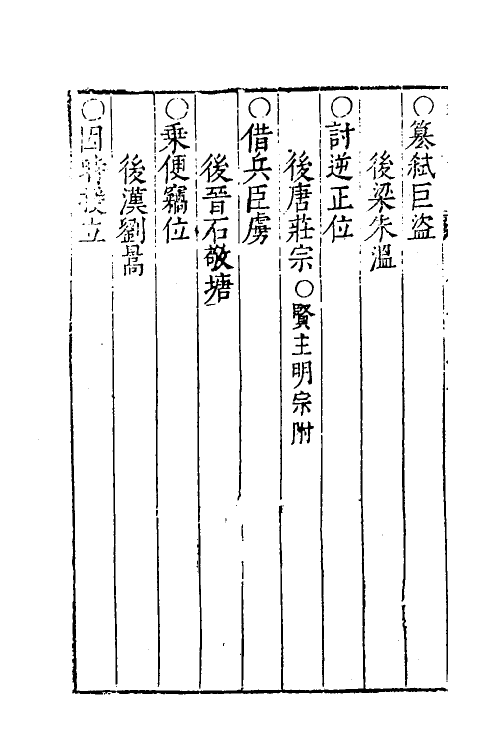 ○篡弑巨盜
後梁朱溫
○討逆正位
後唐莊宗○賢主明宗附
○借兵臣虜
後晉石敬塘
○乘便竊位
後漢劉暠
○因立